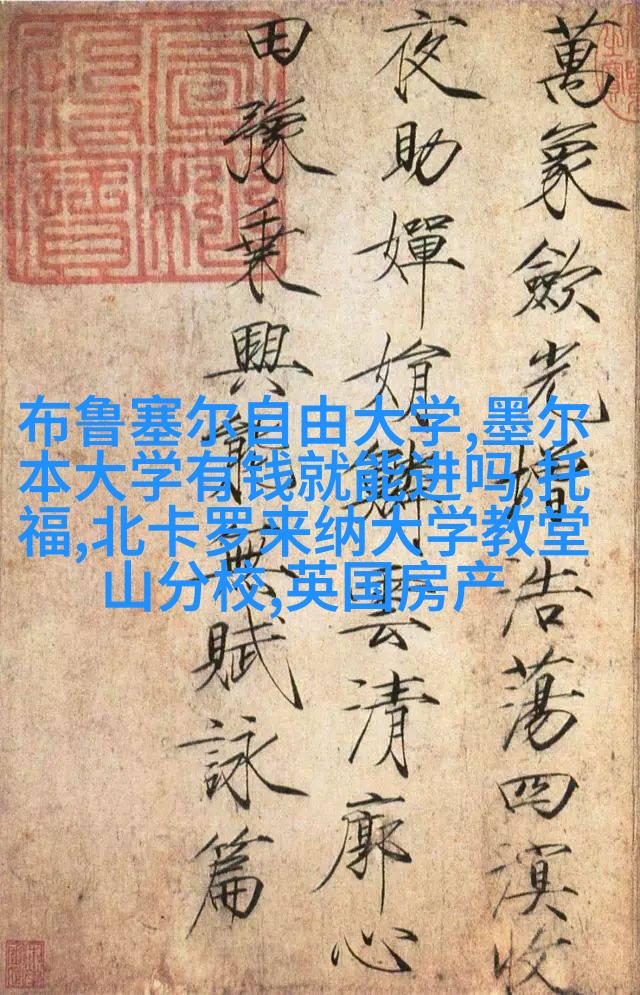 萬象歛光增浩蕩四溟收
夜助嬋娟鱗雲清廓心
田豫乗興能無賦詠篇
布鲁塞尔自由大学,墨尔
本大学有钱就能进吗,托
福,北卡罗来纳大学教堂
山分校,英国房产